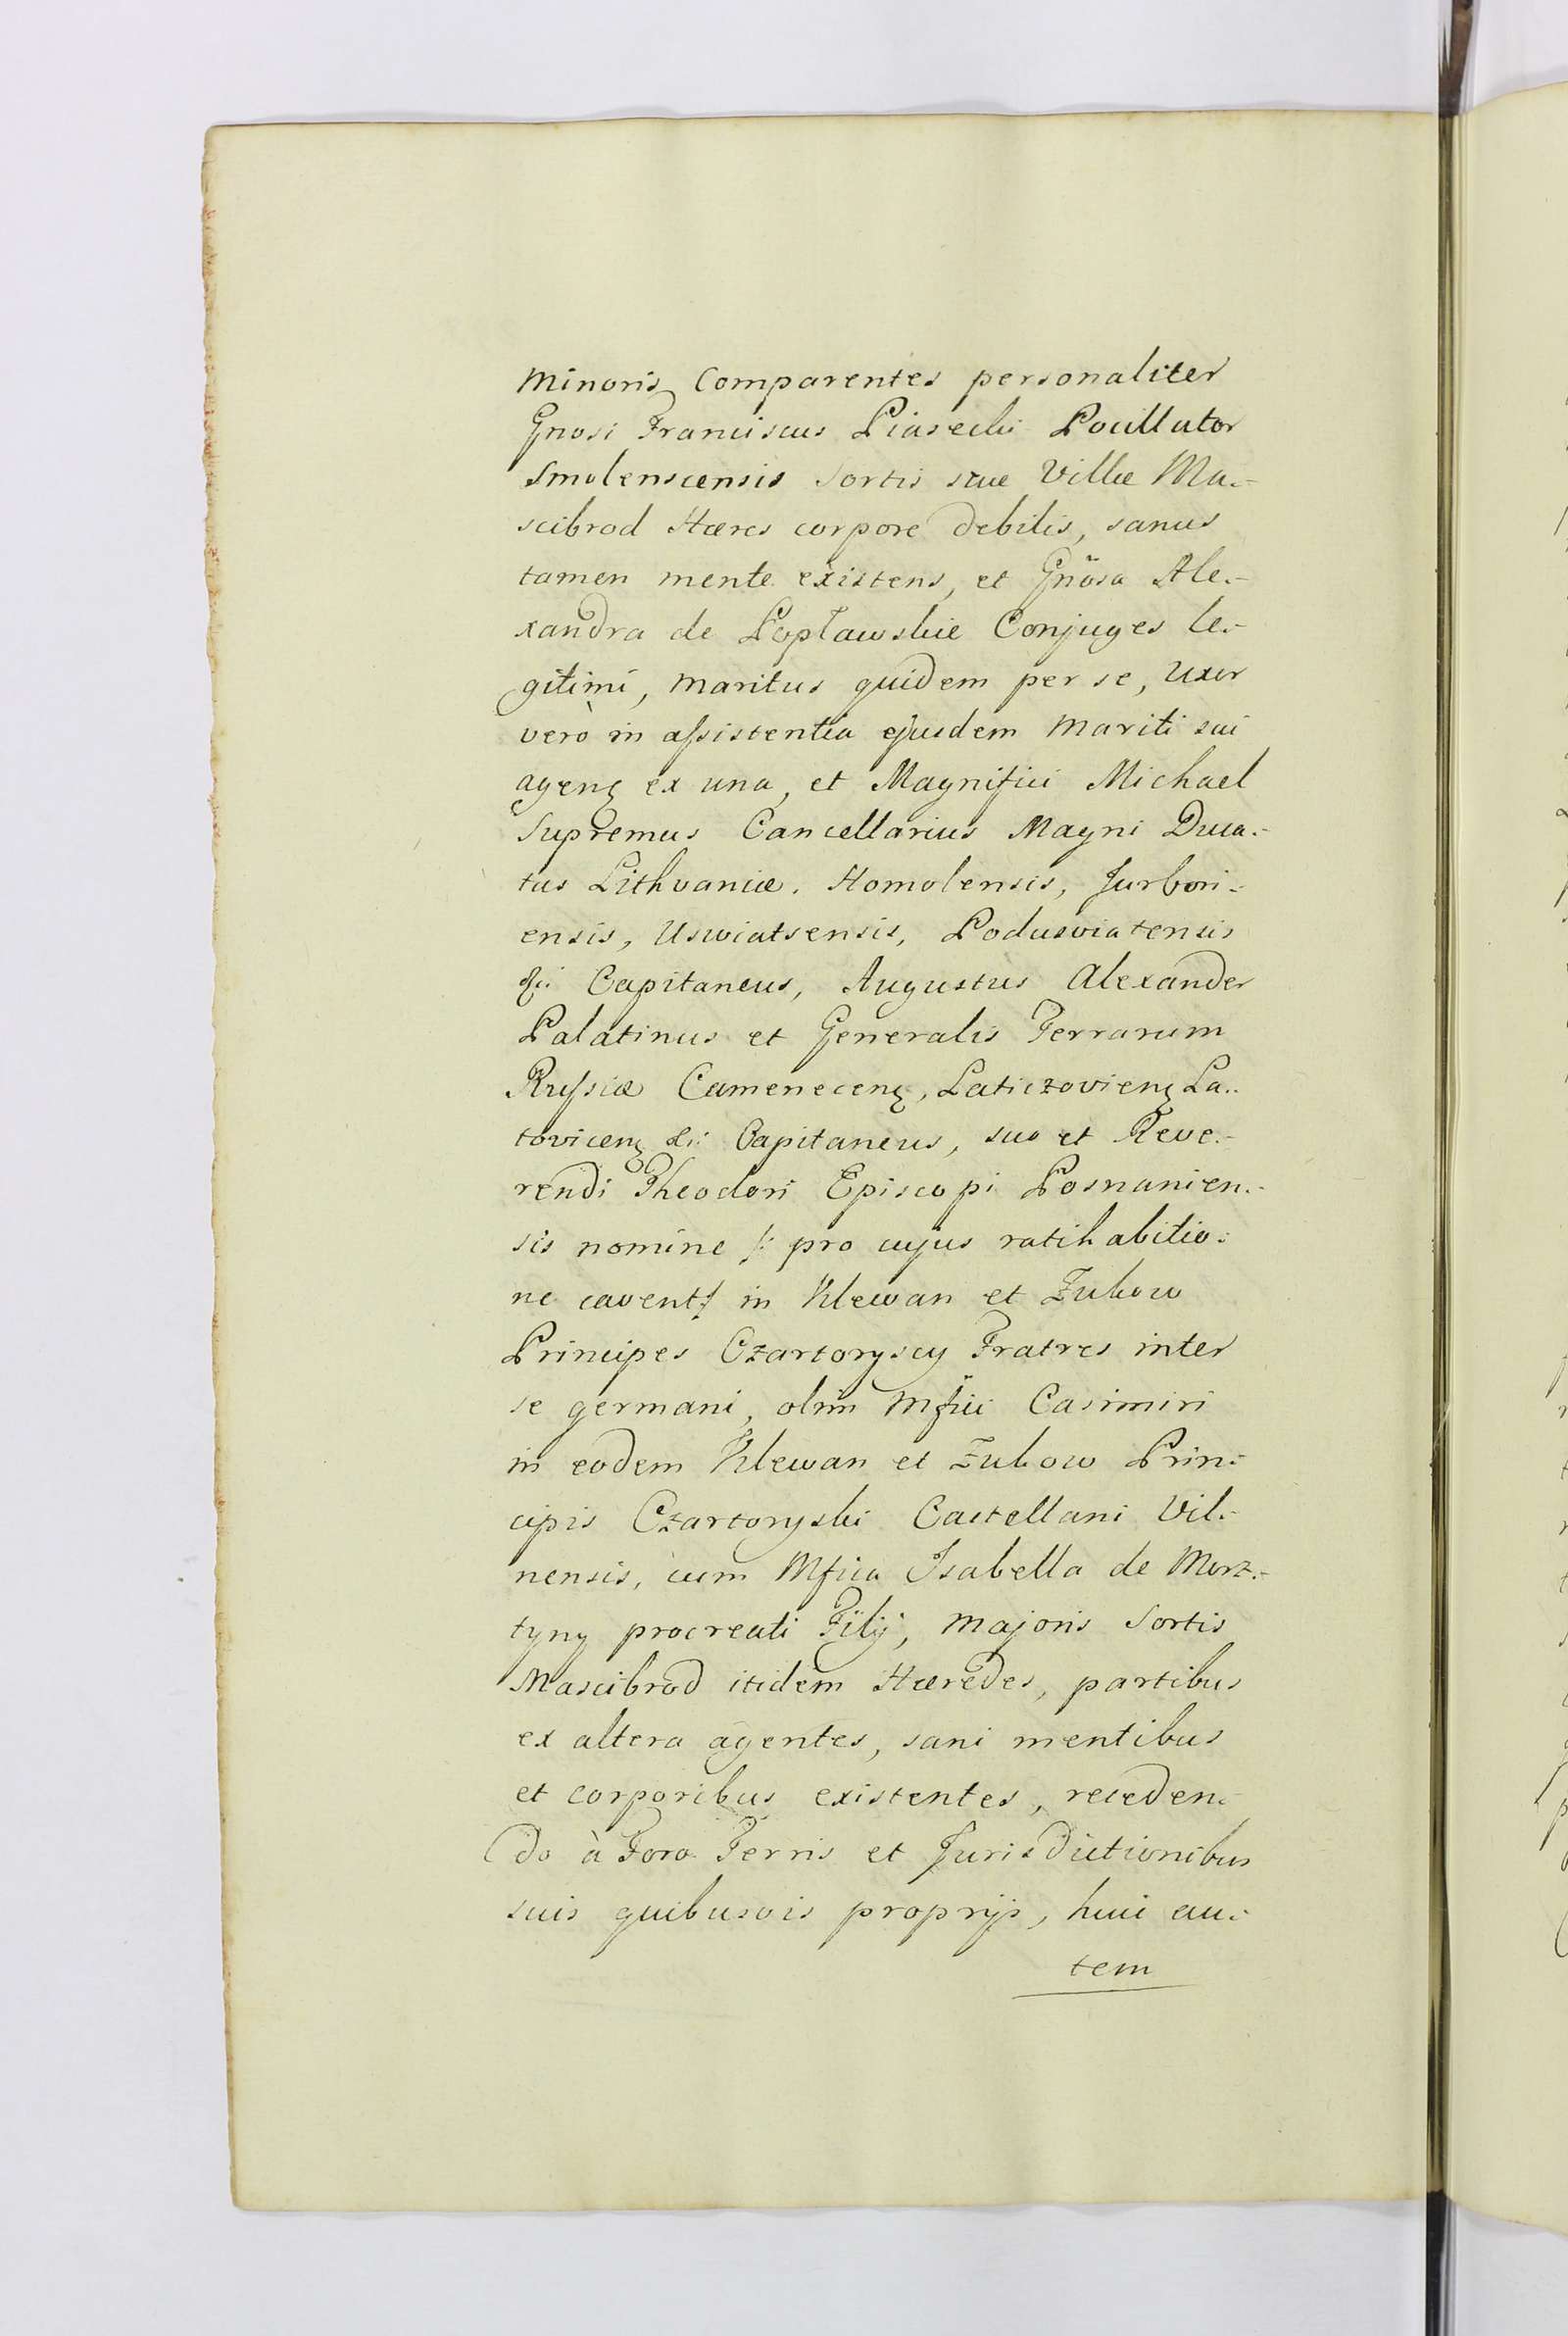 Minoris Comparentes personaliter
Gnosi Franciscus Piasecki Pocillator
Smolenscensis Sortis suæ Villæ Ma:-
scibrod Hæres corpore debilis, sanus
tamen mente existens, et Gnosa Ale:-
xandra de Popławskie Conjuges le:-
gitimi, Maritus quidem per se, Uxor
verò in assistentia ejusdem Mariti sui
agens ex una, et Magnifici Michael
Supremus Cancellarius Magni Duca:-
tus Lithvaniæ. Homolensis, Jurbori:-
ensis, Uswiatsensis, Podusviatensis
&c: Capitaneus, Augustus Alexander
Palatinus et Generalis Terrarum
Russiæ Camenecens, Laticzoviens La:-
tovicens &c: Capitaneus, suo et Reve:-
rendi Theodori Episcopi Posnanien:-
sis nomine /: pro cujus ratihabitio:
ne cavent :/ in Klewan et Żukow
Principes Czartoryscy Fratres inter
se germani, olim Mfici Casimiri
in eodem Klewan et Żukow Prin:
cipis Czartoryski Castellani Vil:-
nensis, cum Mfica Isabella de Morz:-
tyny procreati Filij, Majoris Sortis
Mascibrod itidem Hæredes, partibus
ex altera agentes, sani mentibus
et corporibus existentes, receden:
do à Foro Terris et Jurisdictionibus
suis quibusvis proprijs, huic au:
tem